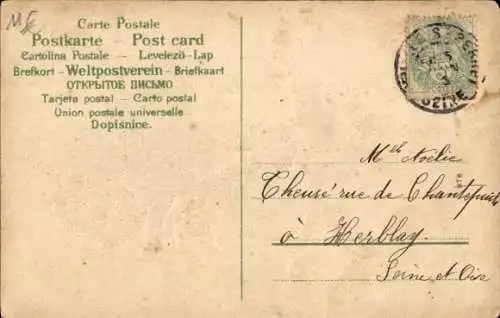 Carte Postale
Postkarte — Post card
Cartolina Postale — Levelező-Lap
Brefkort - Weltpostverein - Briefkaart
ОТКРЫТОЕ ПИСЬМО
Tarjeta postal - Carto postal
Union postale universelle
Dopisnice.
OZINE
Mlle Noélie
Cheusé rue de Chantepuits
à Herblay
Seine et Oise